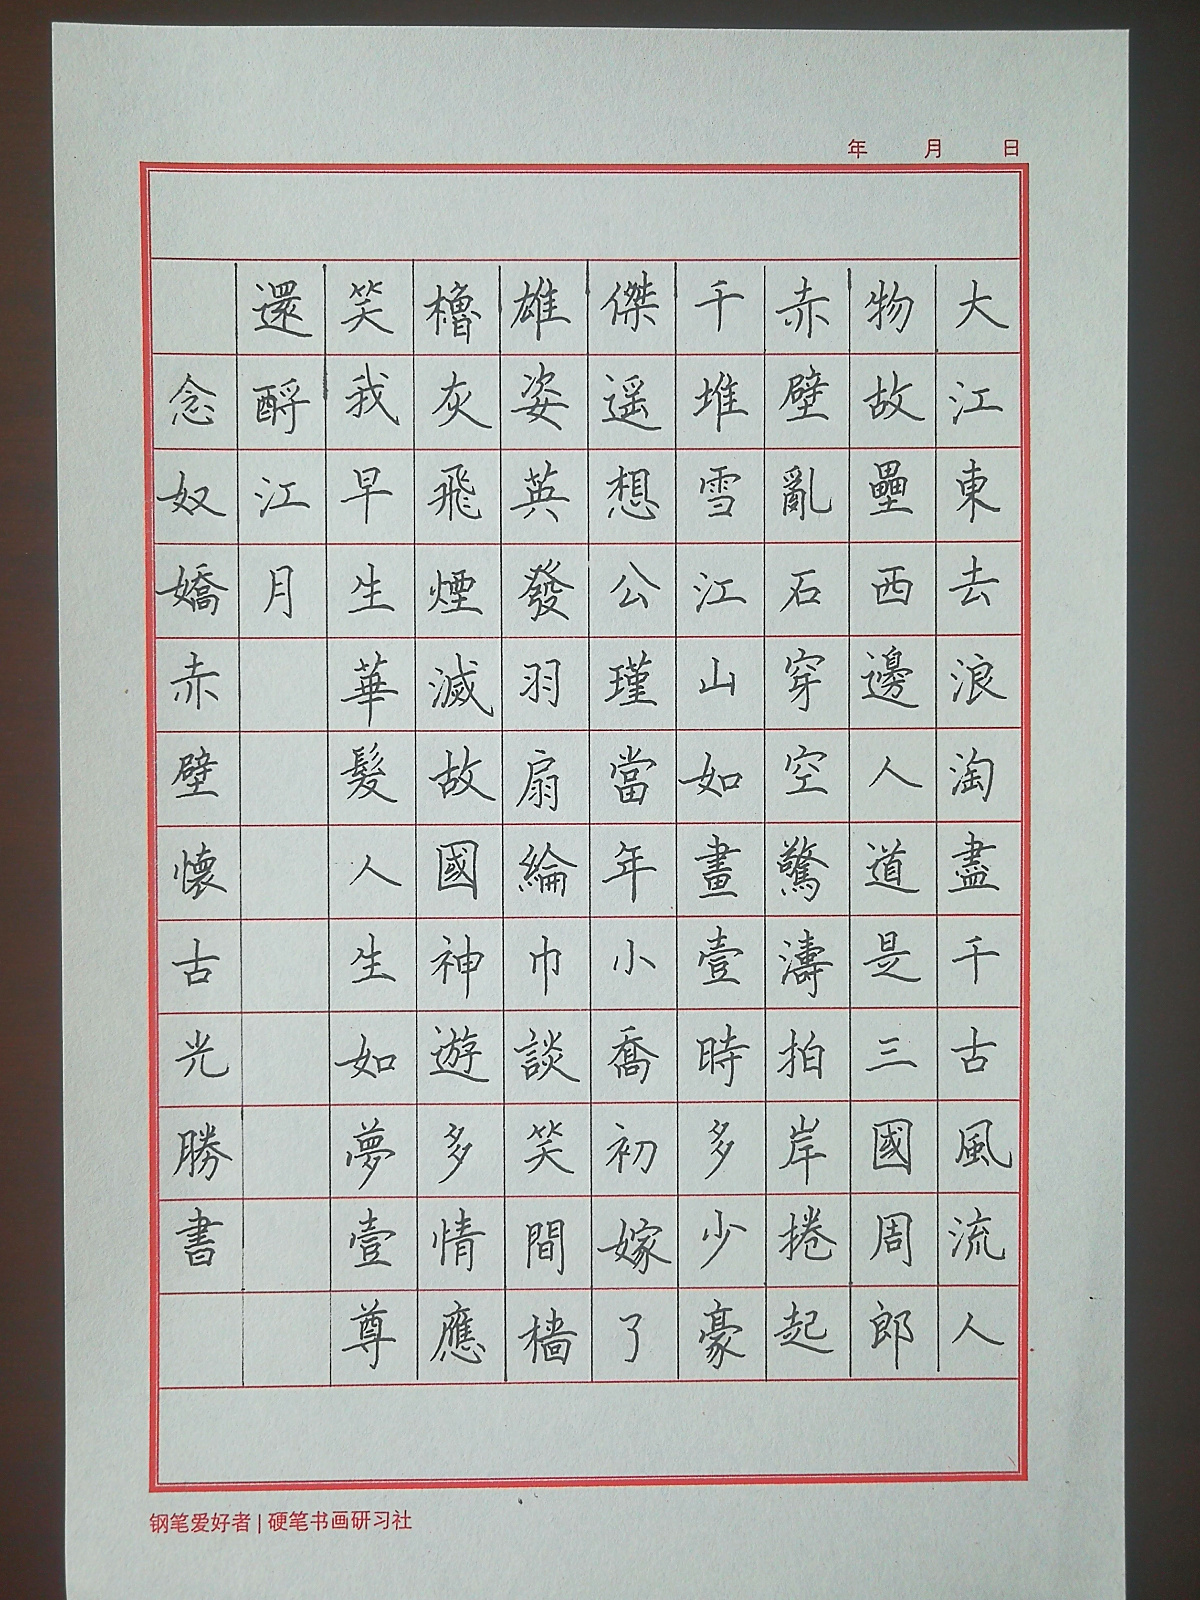 年 月 日
大江東去浪淘盡千古風流人
物故壘西邊人道是三國周郎
赤壁亂石穿空驚濤拍岸捲起
千堆雪江山如畫壹時多少豪
傑遥想公瑾當年小喬初嫁了
雄姿英發羽扇綸巾談笑間檣
櫓灰飛煙滅故國神遊多情應
笑我早生華髮人生如夢壹尊
還酹江月
念奴嬌赤壁懷古光勝書
钢笔爱好者 | 硬笔书画研习社